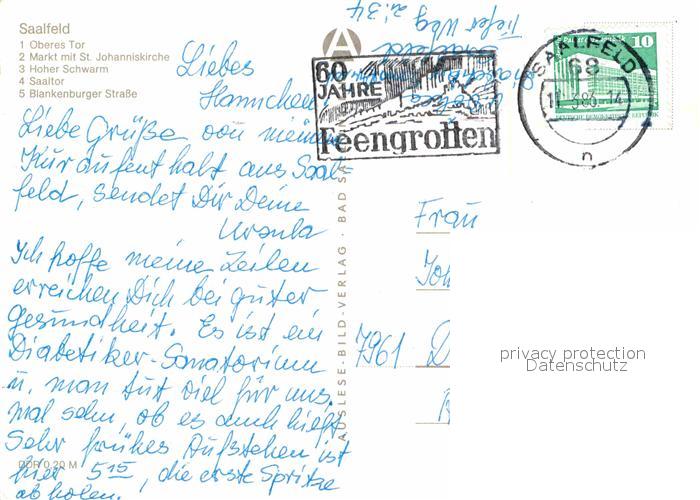 Saalfeld
1 Oberes Tor
2 Markt mit St. Johanniskirche
3 Hoher Schwarm
4 Saaltor
5 Blankenburger Straße
Liebes
Hannchen
Liebe Grüße von meinem
Kuraufenthalt aus Saal-
feld, sendet Dir Deine
Ursula
Ich hoffe meine Zeilen
erreichen Dich bei guter
Gesundheit. Es ist ein
Diabetiker-Sanatorium
u. man tut viel für uns.
Mal sehn, ob es auch hilft
Sehr frühes Aufstehen ist
hier 5 15, die erste Spritze
abholen.
DDR 0,20 M
AUSLESE-BILD-VERLAG · BAD SA
Tiefer Weg 34
Saalfeld
60
JAHRE
Feengrotten
SAALFELD
68
n
10
Frau
Joh
7961 D
privacy protection
Datenschutz